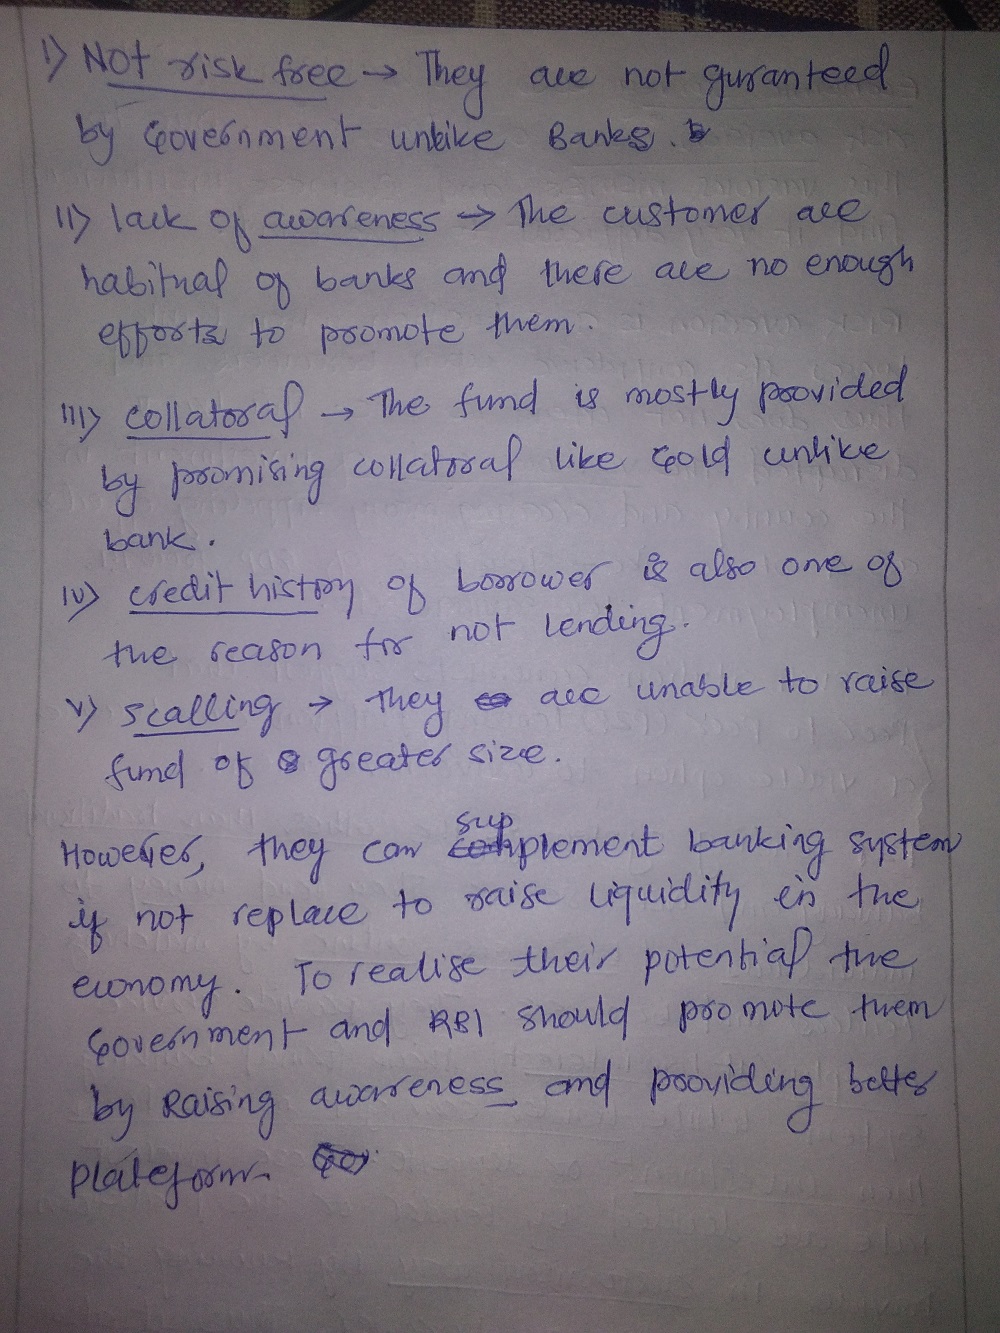 I) Not risk free → They are not guranteed
by Government unlike Banks.
II) lack of awareness → The customer are
habitual of banks and there are no enough
efforts to promote them.
III) collatoral → The fund is mostly provided
by promising collatoral like Gold unlike
bank.
IV) credit history of borrower is also one of
the reason for not lending.
V) scalling → They are unable to raise
fund of greater size.
However, they can supplement banking system
if not replace to raise liquidity in the
economy. To realise their potential the
Government and RBI should promote them
by Raising awareness and providing better
plateform.